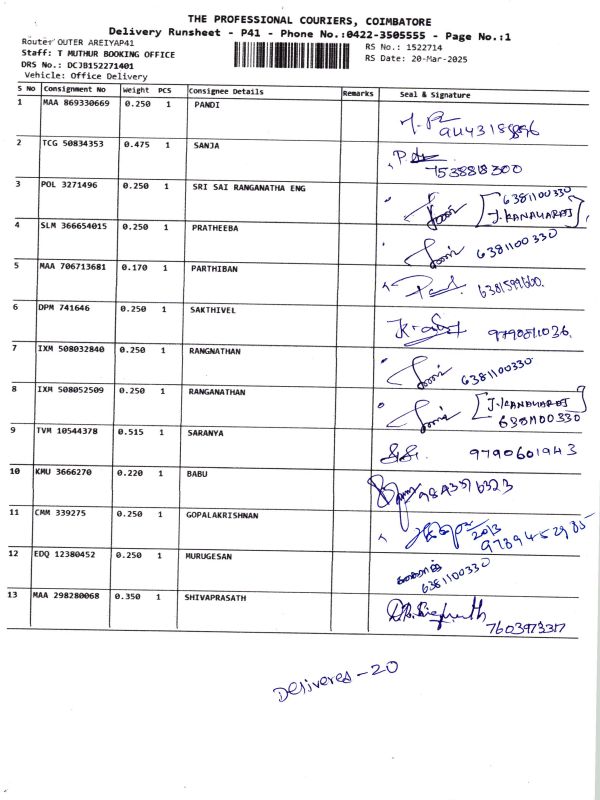 THE PROFESSIONAL COURIERS, COIMBATORE
Delivery Runsheet - P41 - Phone No.:0422-3505555 - Page No.:1
Router OUTER AREIYAP41
Staff: T MUTHUR BOOKING OFFICE
DRS No.: DCJB152271401
Vehicle: Office Delivery
RS No.: 1522714
RS Date: 20-Mar-2025
S No Consignment No Weight PCS Consignee Details Remarks Seal & Signature
1 MAA 869330669 0.250 1 PANDI
2 TCG 50834353 0.475 1 SANJA 7538818300
3 POL 3271496 0.250 1 SRI SAI RANGANATHA ENG 6381100330
J.KANAHARAJ
4 SLM 366654015 0.250 1 PRATHEEBA 6381100330
5 MAA 706713681 0.170 1 PARTHIBAN
6 DPM 741646 0.250 1 SAKTHIVEL
7 IXM 508032840 0.250 1 RANGNATHAN 6381100330
8 IXM 508052509 0.250 1 RANGANATHAN J.KANAHARAJ
6381100330
9 TVM 10544378 0.515 1 SARANYA 9790601943
10 KMU 3666270 0.220 1 BABU
11 CMM 339275 0.250 1 GOPALAKRISHNAN
12 EDQ 12380452 0.250 1 MURUGESAN
6381100330
13 MAA 298280068 0.350 1 SHIVAPRASATH
7603973317
Deliveres - 20